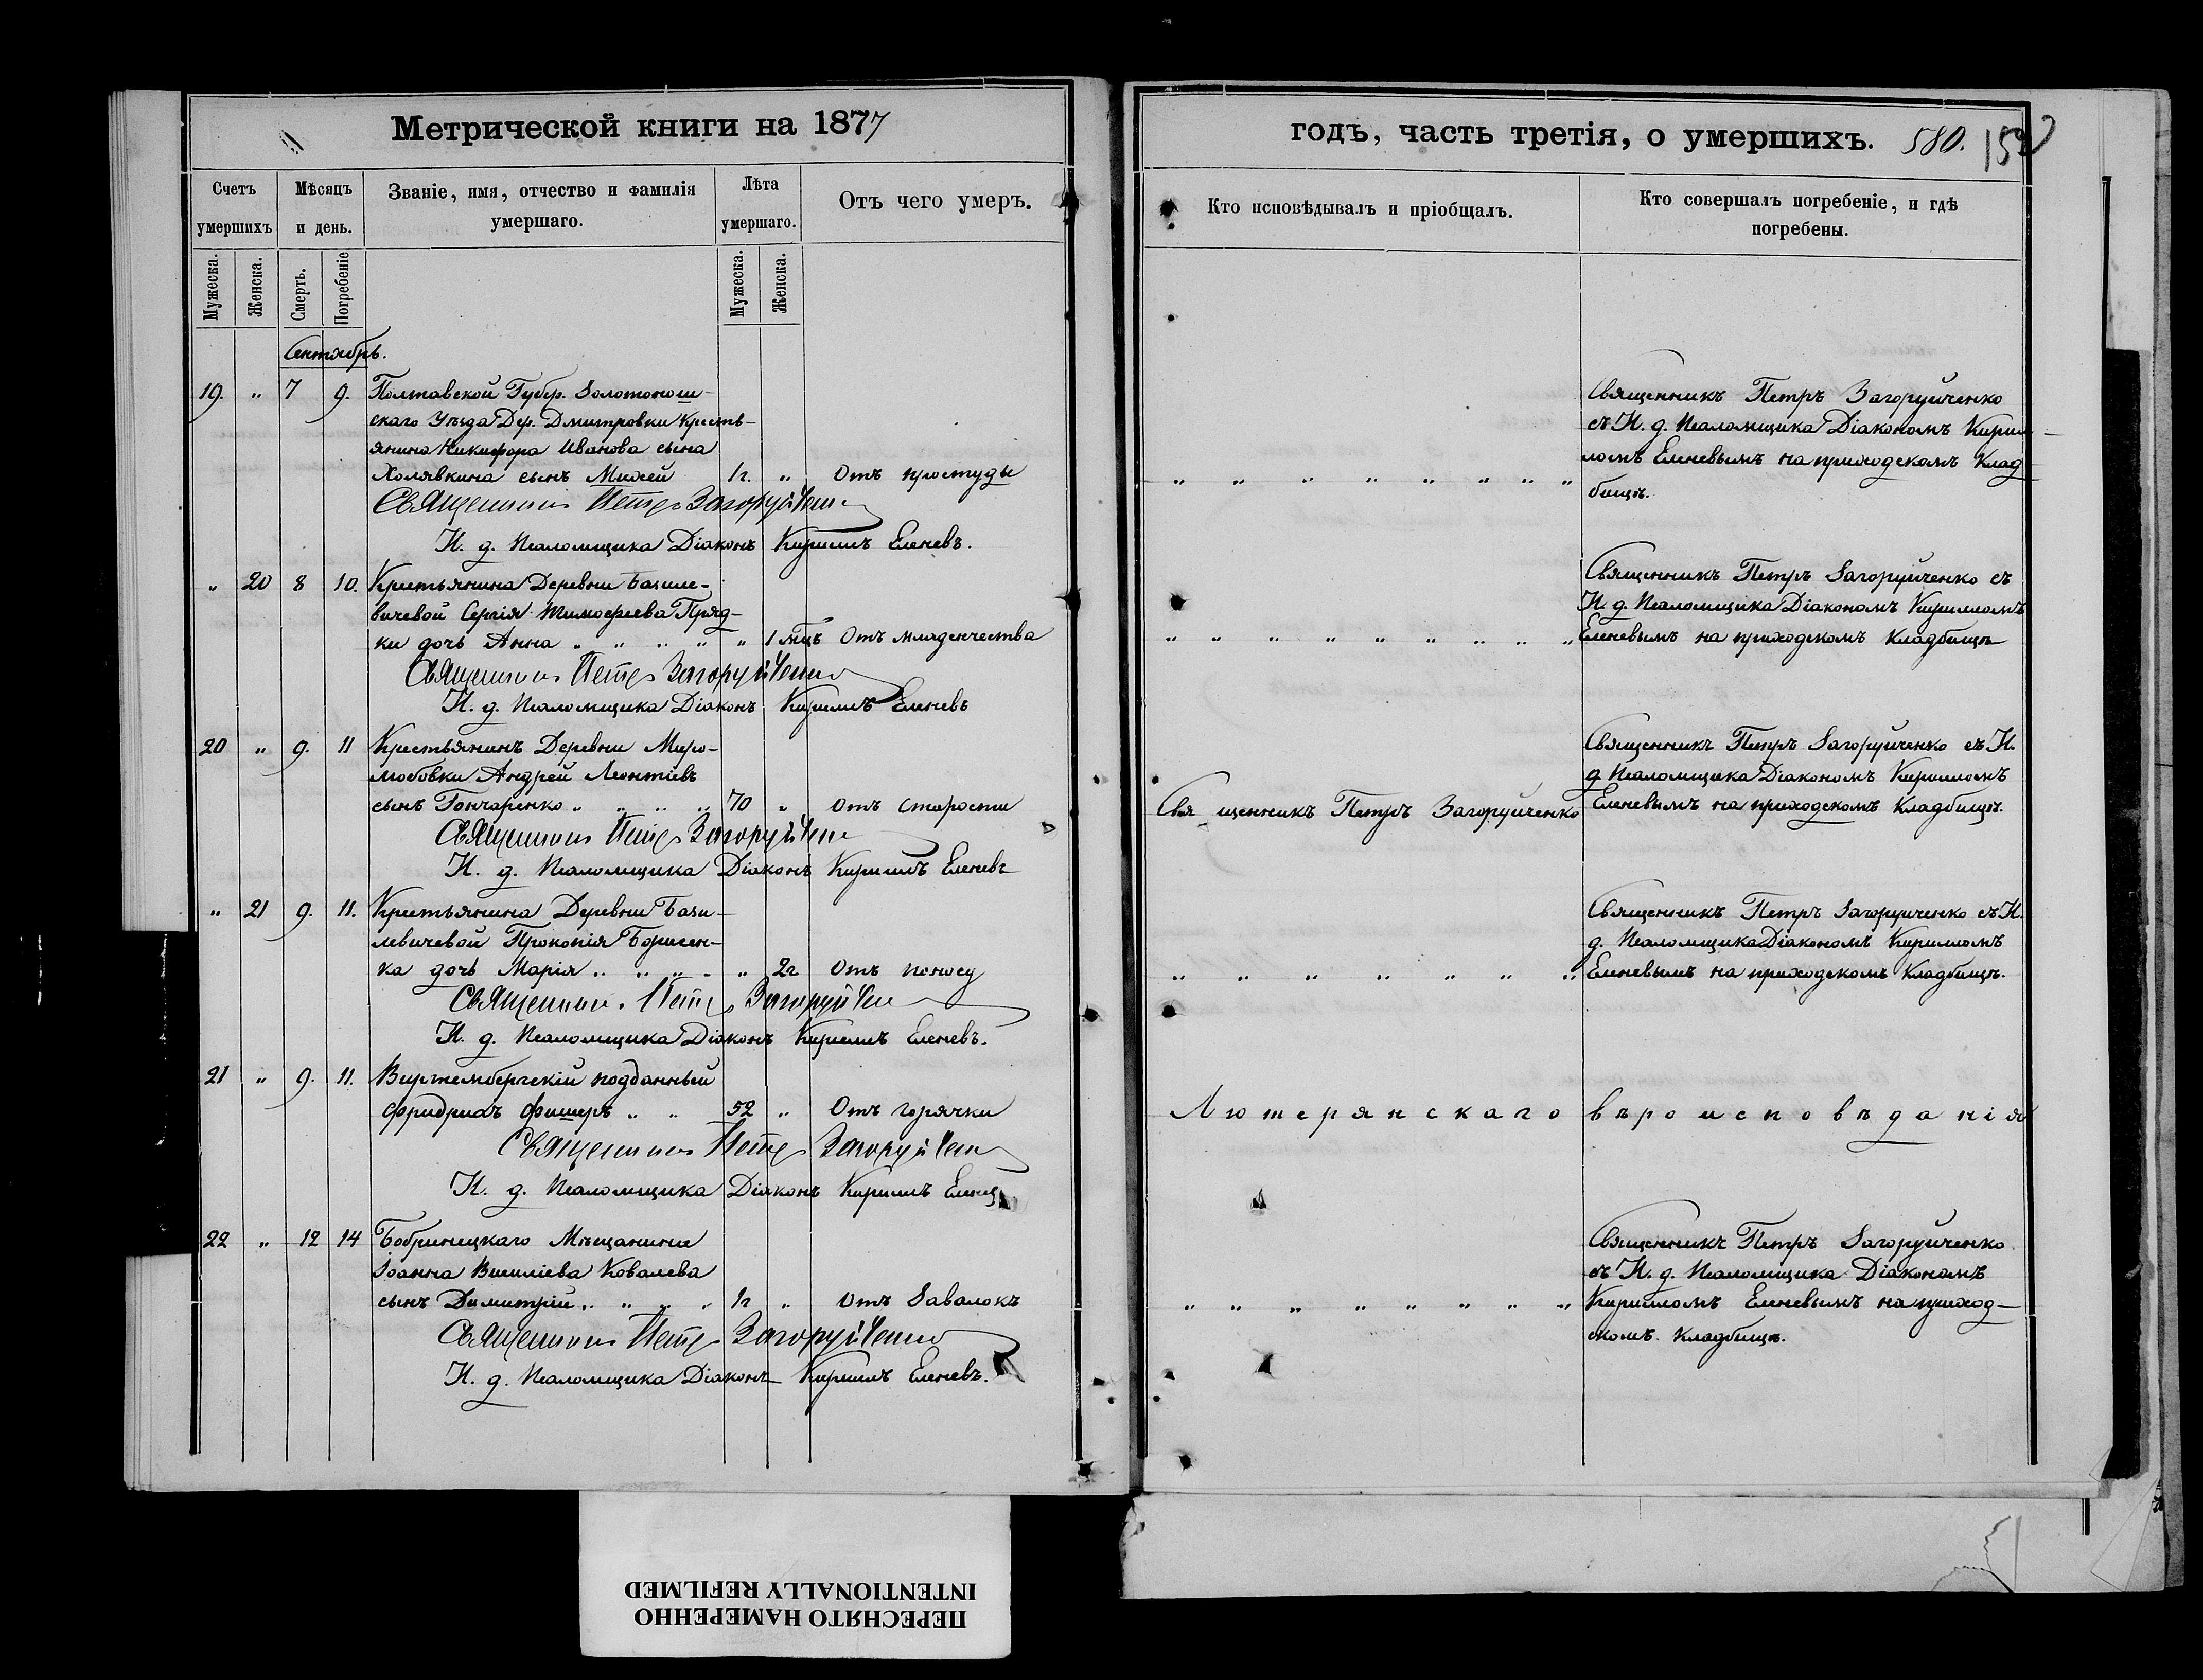 Метрической книги на 1877
Счетъ умершихъ
Мѣсяцъ и день.
Званіе, имя, отчество и фамилія умершаго.
Лѣта умершаго.
Отъ чего умеръ.
Мужеска.
Женска.
Смерть.
Погребеніе
Мужеска.
Женска.
Сентябрь.
19. " 7 9. Полтавской Губер. Золотонош-
скаго Уѣзда Дер. Дмитровки Кресть-
янина Никифора Иванова сына
Холявкина сынъ Михей 1г. " Отъ простуды
Священникъ Петръ Загоруйченко
И. д. Псаломщика Діаконъ Кириллъ Еленевъ.
" 20 8 10. Крестьянина Деревни Базиле-
вичевой Сергія Тимофеева Пряд-
ки дочь Анна " " " " " 1 мцъ Отъ младенчества
Священникъ Петръ Загоруйченко
И. д. Псаломщика Діаконъ Кириллъ Еленевъ
20 " 9. 11 Крестьянинъ Деревни Миро-
любовки Андрей Леонтіевъ
сынъ Гончаренко " " " " 70 " отъ старости
Священникъ Петръ Загоруйченко
И. д. Псаломщика Діаконъ Кириллъ Еленевъ
" 21 9. 11. Крестьянина Деревни Бази-
левичевой Прокопія Борисен-
ка дочь Марія " " " " " 2г Отъ поносу
Священникъ Петръ Загоруйченко
И. д. Псаломщика Діаконъ Кириллъ Еленевъ.
21 " 9. 11. Виртембергскій подданный
Фридрихъ Фишеръ " " 52 " Отъ горячки
Священникъ Петръ Загоруйченко
И. д. Псаломщика Діаконъ Кириллъ Еленевъ
22 " 12 14 Бобринецкаго Мѣщанина
Іоанна Василіева Ковалева
сынъ Димитрій " " " " 1г " Отъ Завалокъ
Священникъ Петръ Загоруйченко
И. д. Псаломщика Діаконъ Кириллъ Еленевъ.
годъ, часть третія, о умершихъ. 580.
Кто исповѣдывалъ и пріобщалъ.
Кто совершалъ погребеніе, и гдѣ погребены.
Священникъ Петръ Загоруйченко
съ И. д. Псаломщика Діакономъ Кирил-
ломъ Еленевымъ на приходскомъ Клад-
" " " " " " " "
бищѣ.
Священникъ Петръ Загоруйченко съ
И. д. Псаломщика Діакономъ Кирилломъ
" " " " " " " " Еленевымъ на приходскомъ Кладбищѣ
Священникъ Петръ Загоруйченко съ И.
д Псаломщика Діакономъ Кирилломъ
Священникъ Петръ Загоруйченко Еленевымъ на приходскомъ Кладбищѣ.
Священникъ Петръ Загоруйченко съ И.
д. Псаломщика Діакономъ Кирилломъ
" " " " " " " Еленевымъ на приходскомъ Кладбищѣ.
Лютерянскаго вѣроисповѣданія
Священникъ Петръ Загоруйченко
съ И. д. Псаломщика Діакономъ
" " " " " " " " Кирилломъ Еленевымъ на приход-
скомъ Кладбищѣ.
INTENTIONALLY REFILMED
ПЕРЕСНЯТО НАМЕРЕННО